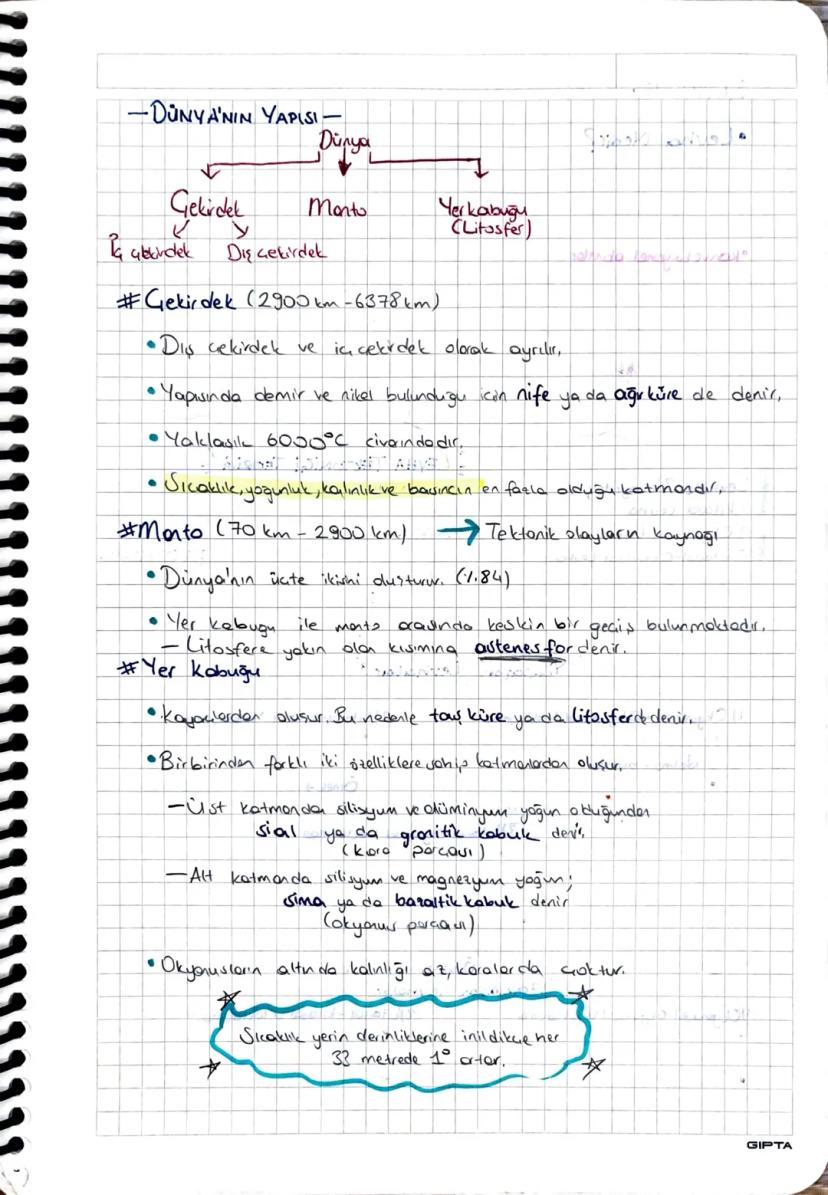 —DÜNYA'NIN YAPISI—
Dünya
Çekirdek Manto Yerkabuğu
(Litosfer)
İç çekirdek Dış çekirdek
#Çekirdek (2900 km - 6378 km)
• Dış çekirdek ve iç çekirdek olarak ayrılır.
• Yapısında demir ve nikel bulunduğu için nife ya da ağır küre de denir.
• Yaklaşık 6000°C civarındadır.
• Sıcaklık, yoğunluk, kalınlık ve basıncın en fazla olduğu katmandır.
#Manto (70 km - 2900 km) → Tektonik olayların kaynağı
• Dünya'nın üçte ikisini oluşturur. (%84)
• Yer kabuğu ile manto arasında keskin bir geçiş bulunmaktadır.
— Litosfere yakın olan kısmına astenesfor denir.
#Yer Kabuğu
• Kayaçlardan oluşur. Bu nedenle taş küre ya da litosfer de denir.
• Birbirinden farklı iki özelliklere sahip katmanlardan oluşur.
—Üst katmanda silisyum ve alüminyum yoğun olduğundan
sial ya da granitik kabuk denir.
(kara parçası)
—Alt katmanda silisyum ve magnezyum yoğun;
sima ya da bazaltik kabuk denir
(okyanus parçası)
• Okyanusların altında kalınlığı az, karalarda çoktur.
Sıcaklık yerin derinliklerine inildikçe her
33 metrede 1° artar.
GIPTA